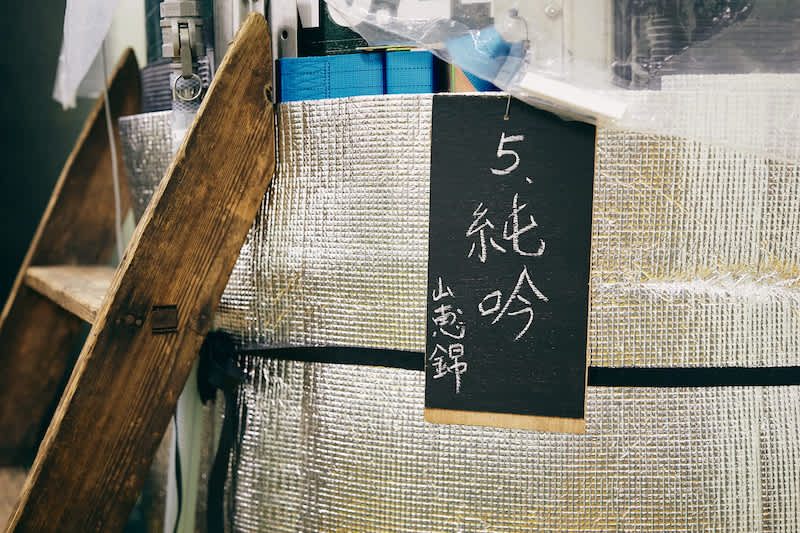 5、純吟
山恵錦